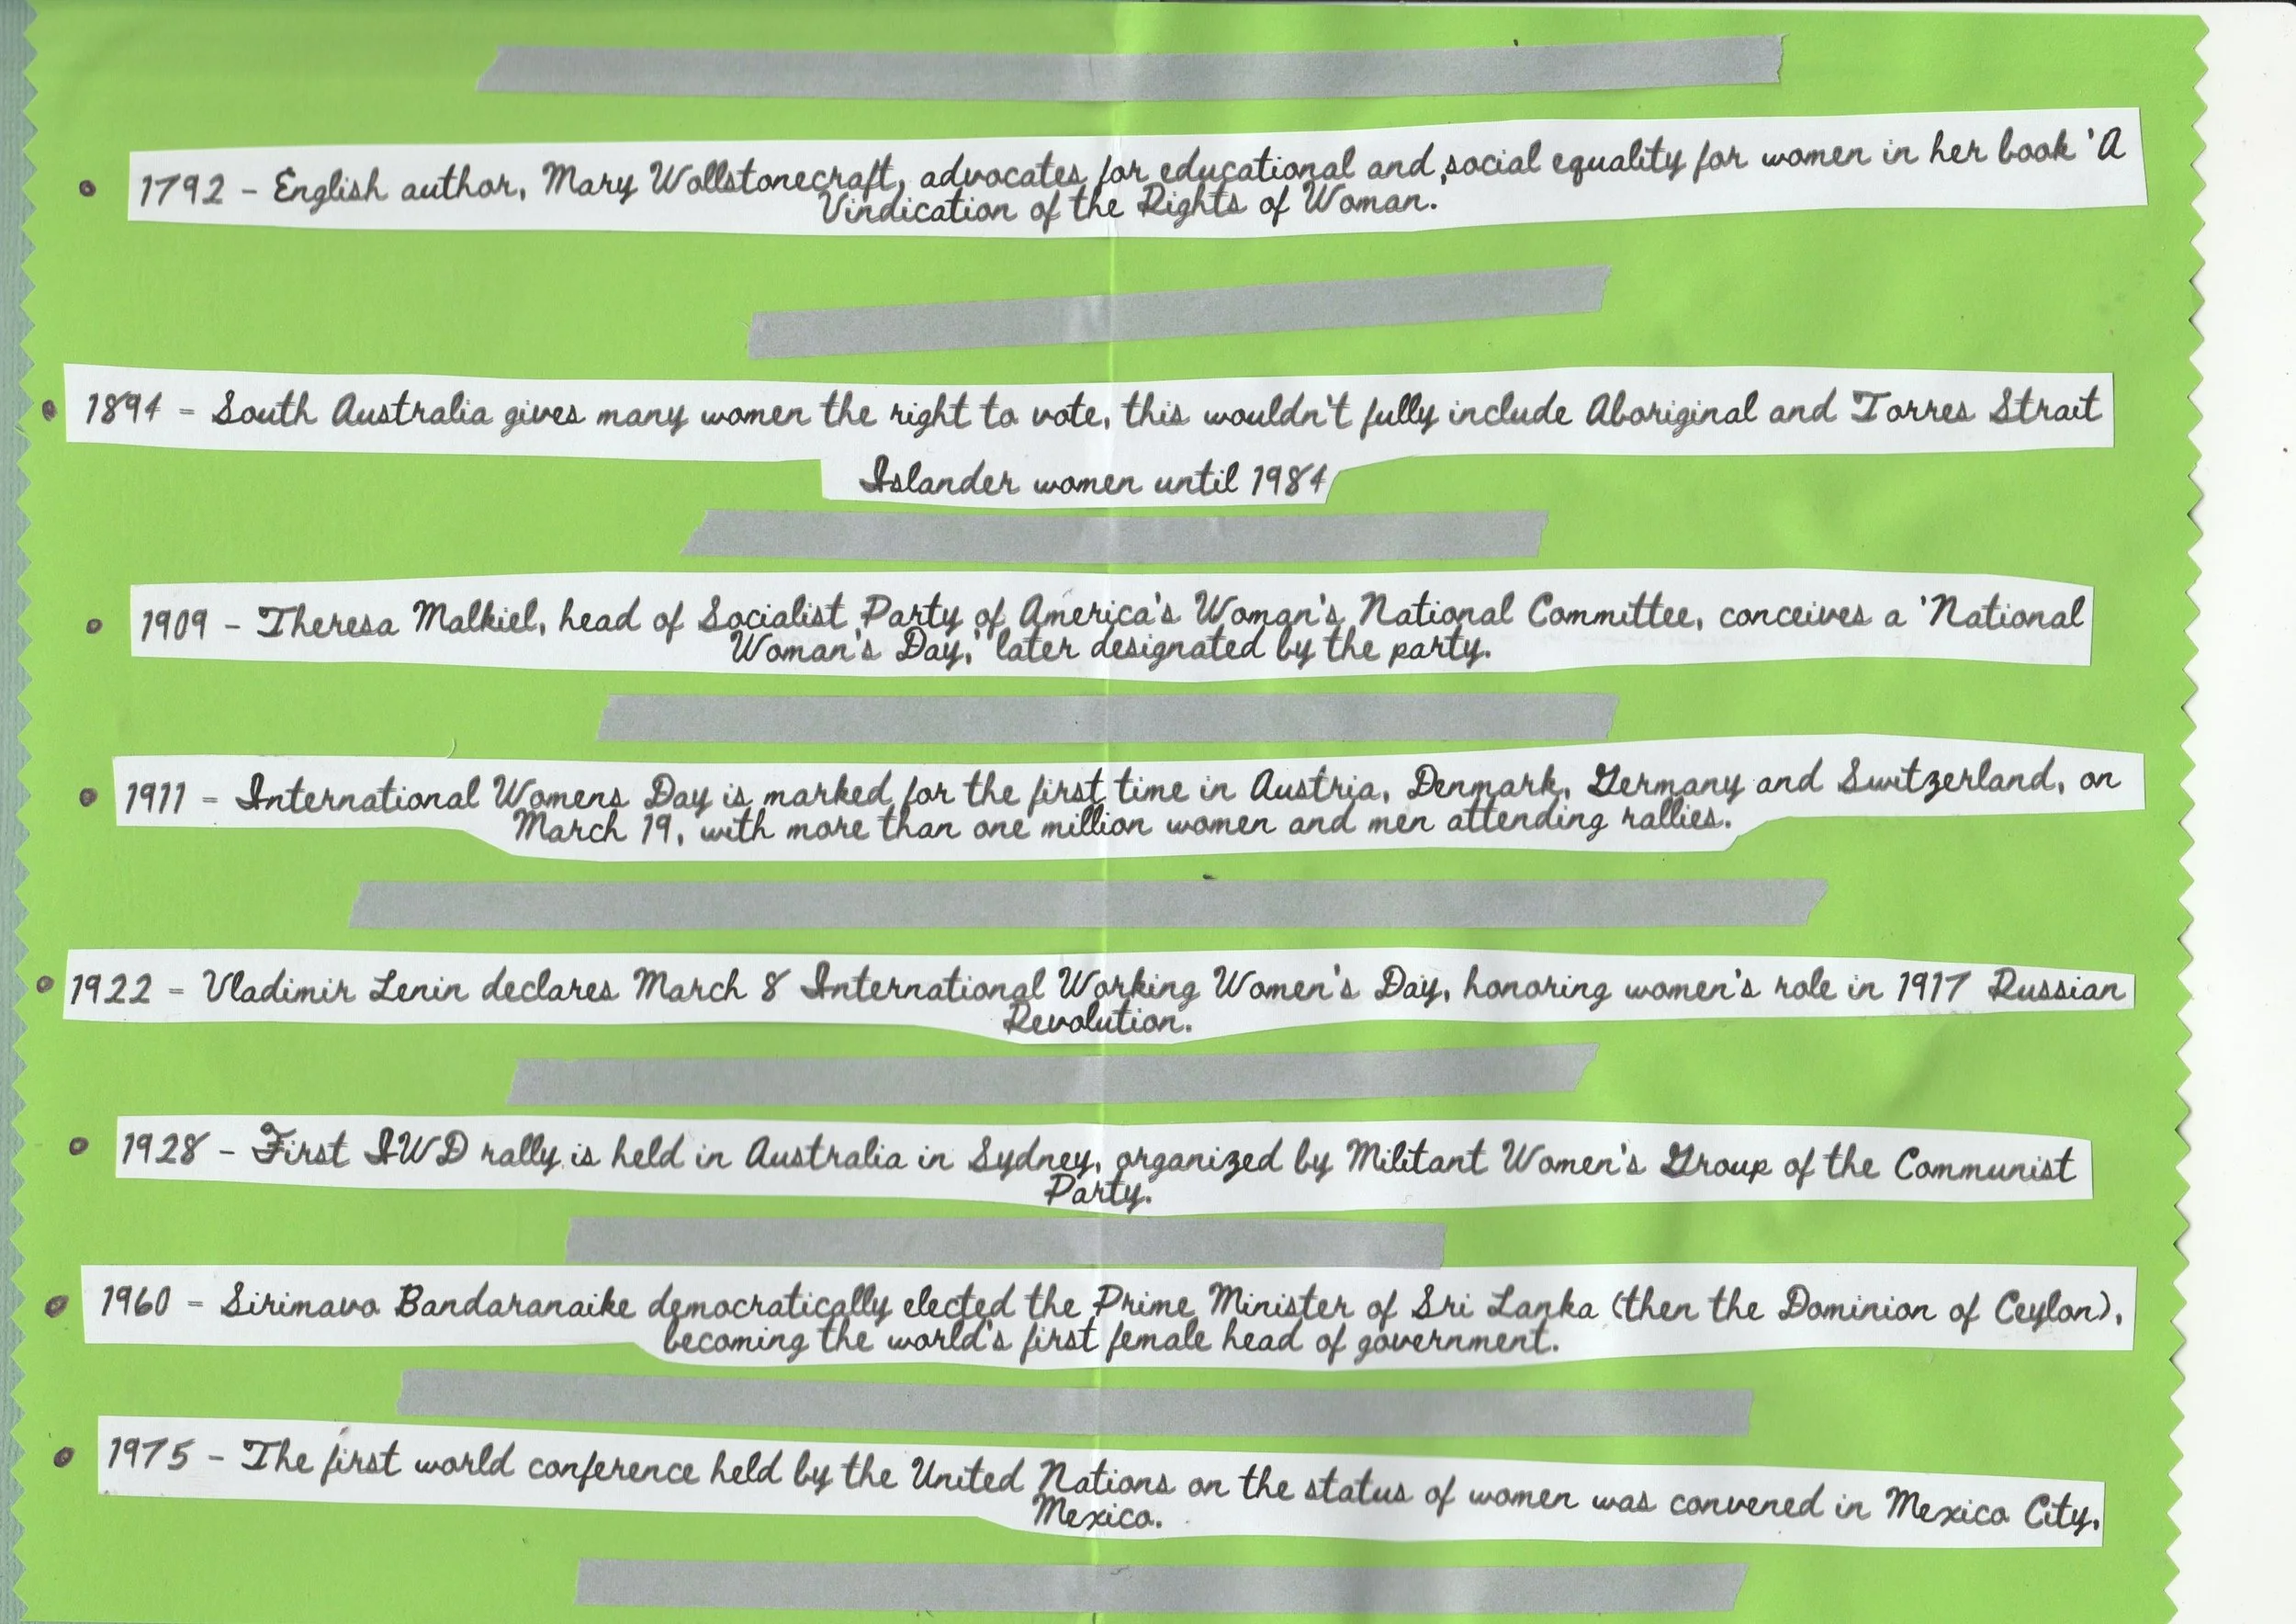 1792 - English author, Mary Wollstonecraft, advocates for educational and social equality for women in her book 'A
Vindication of the Rights of Woman.
1894 - South Australia gives many women the right to vote, this wouldn't fully include Aboriginal and Torres Strait
Islander women until 1984
1909 - Theresa Malkiel, head of Socialist Party of America's Woman's National Committee, conceives a 'National
Woman's Day,' later designated by the party.
1911 - International Womens Day is marked for the first time in Austria, Denmark, Germany and Switzerland, on
March 19, with more than one million women and men attending rallies.
1922 - Vladimir Lenin declares March 8 International Working Women's Day, honoring women's role in 1917 Russian
Revolution.
1928 - First IWD rally is held in Australia in Sydney, organized by Militant Women's Group of the Communist
Party.
1960 - Sirimavo Bandaranaike democratically elected the Prime Minister of Sri Lanka (then the Dominion of Ceylon),
becoming the world's first female head of government.
1975 - The first world conference held by the United Nations on the status of women was convened in Mexico City,
Mexico.